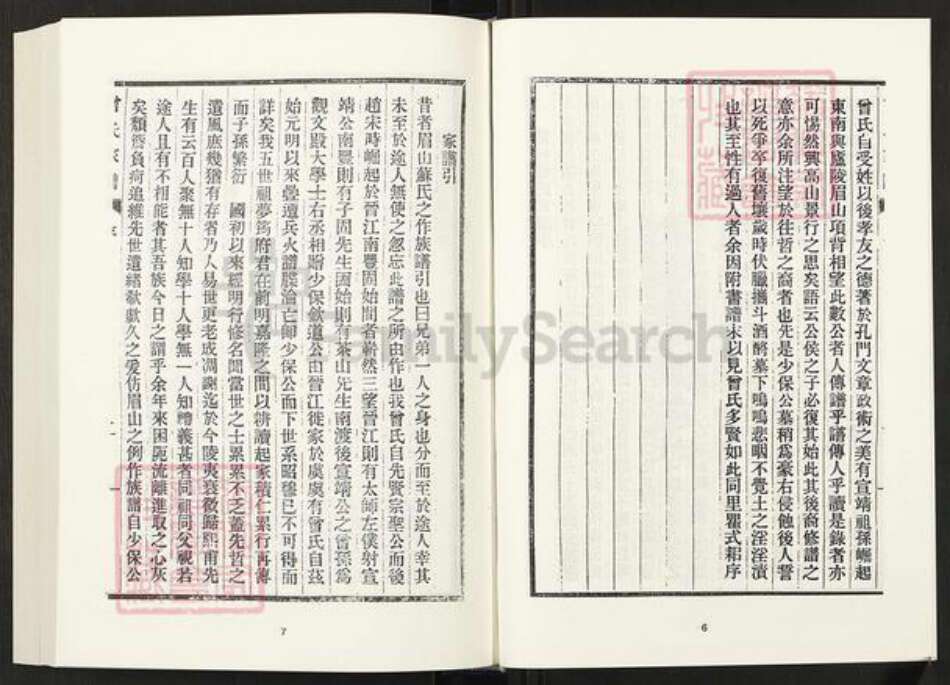 曾氏自受姓以後孝友之德著於孔門文章政術之美有宣靖祖孫崛起
東南與廬陵眉山項背相望此數公者人傳譜乎譜傳人乎讀是錄者亦
可惕然興高山景行之思矣語云公侯之子必復其始此其後裔修譜之
意亦余所注望於往哲之裔者也先是少保公墓稍為豪右侵蝕後人誓
以死爭卒復舊壤歲時伏臘攜斗酒酹墓下嗚嗚悲咽不覺土之淫淫漬
也其至性有過人者余因附書譜末以見曾氏多賢如此同里瞿式耜序
6
家譜引
昔者眉山蘇氏之作族譜引也曰兄弟一人之身也分而至於途人幸其
未至於途人無使之忽忘此譜之所由作也我曾氏自先賢宗聖公而後
趙宋時崛起於晉江南豐固始間者嶄然三望晉江則有太師左僕射宣
靖公南豐則有子固先生固始則有茶山先生南渡後宣靖公之曾孫為
觀文殿大學士右丞相贈少保欽道公由晉江徙家於虞虞有曾氏自茲
始元明以來疊遭兵火譜牒淪亡師少保公而下世系昭穆已不可得而
詳矣我五世祖夢筠府君在前明嘉隆之間以耕讀起家積仁累行再傳
而子孫繁衍 國初以來經明行修名聞當世之士累累不乏蓋先哲之
遺風庶幾猶有存者乃人易世更老成凋謝迄於今陵夷衰微歸熙甫先
生有云百人聚無十人知學十人學無一人知禮義甚者同祖同父視若
途人且有不相能者其吾族今日之謂乎余年來困阨流離進取之心灰
矣頹齋負疴追維先世遺緒欷歔久之爰仿眉山之例作族譜自少保公
曾氏家譜 序
7
FamilySearch